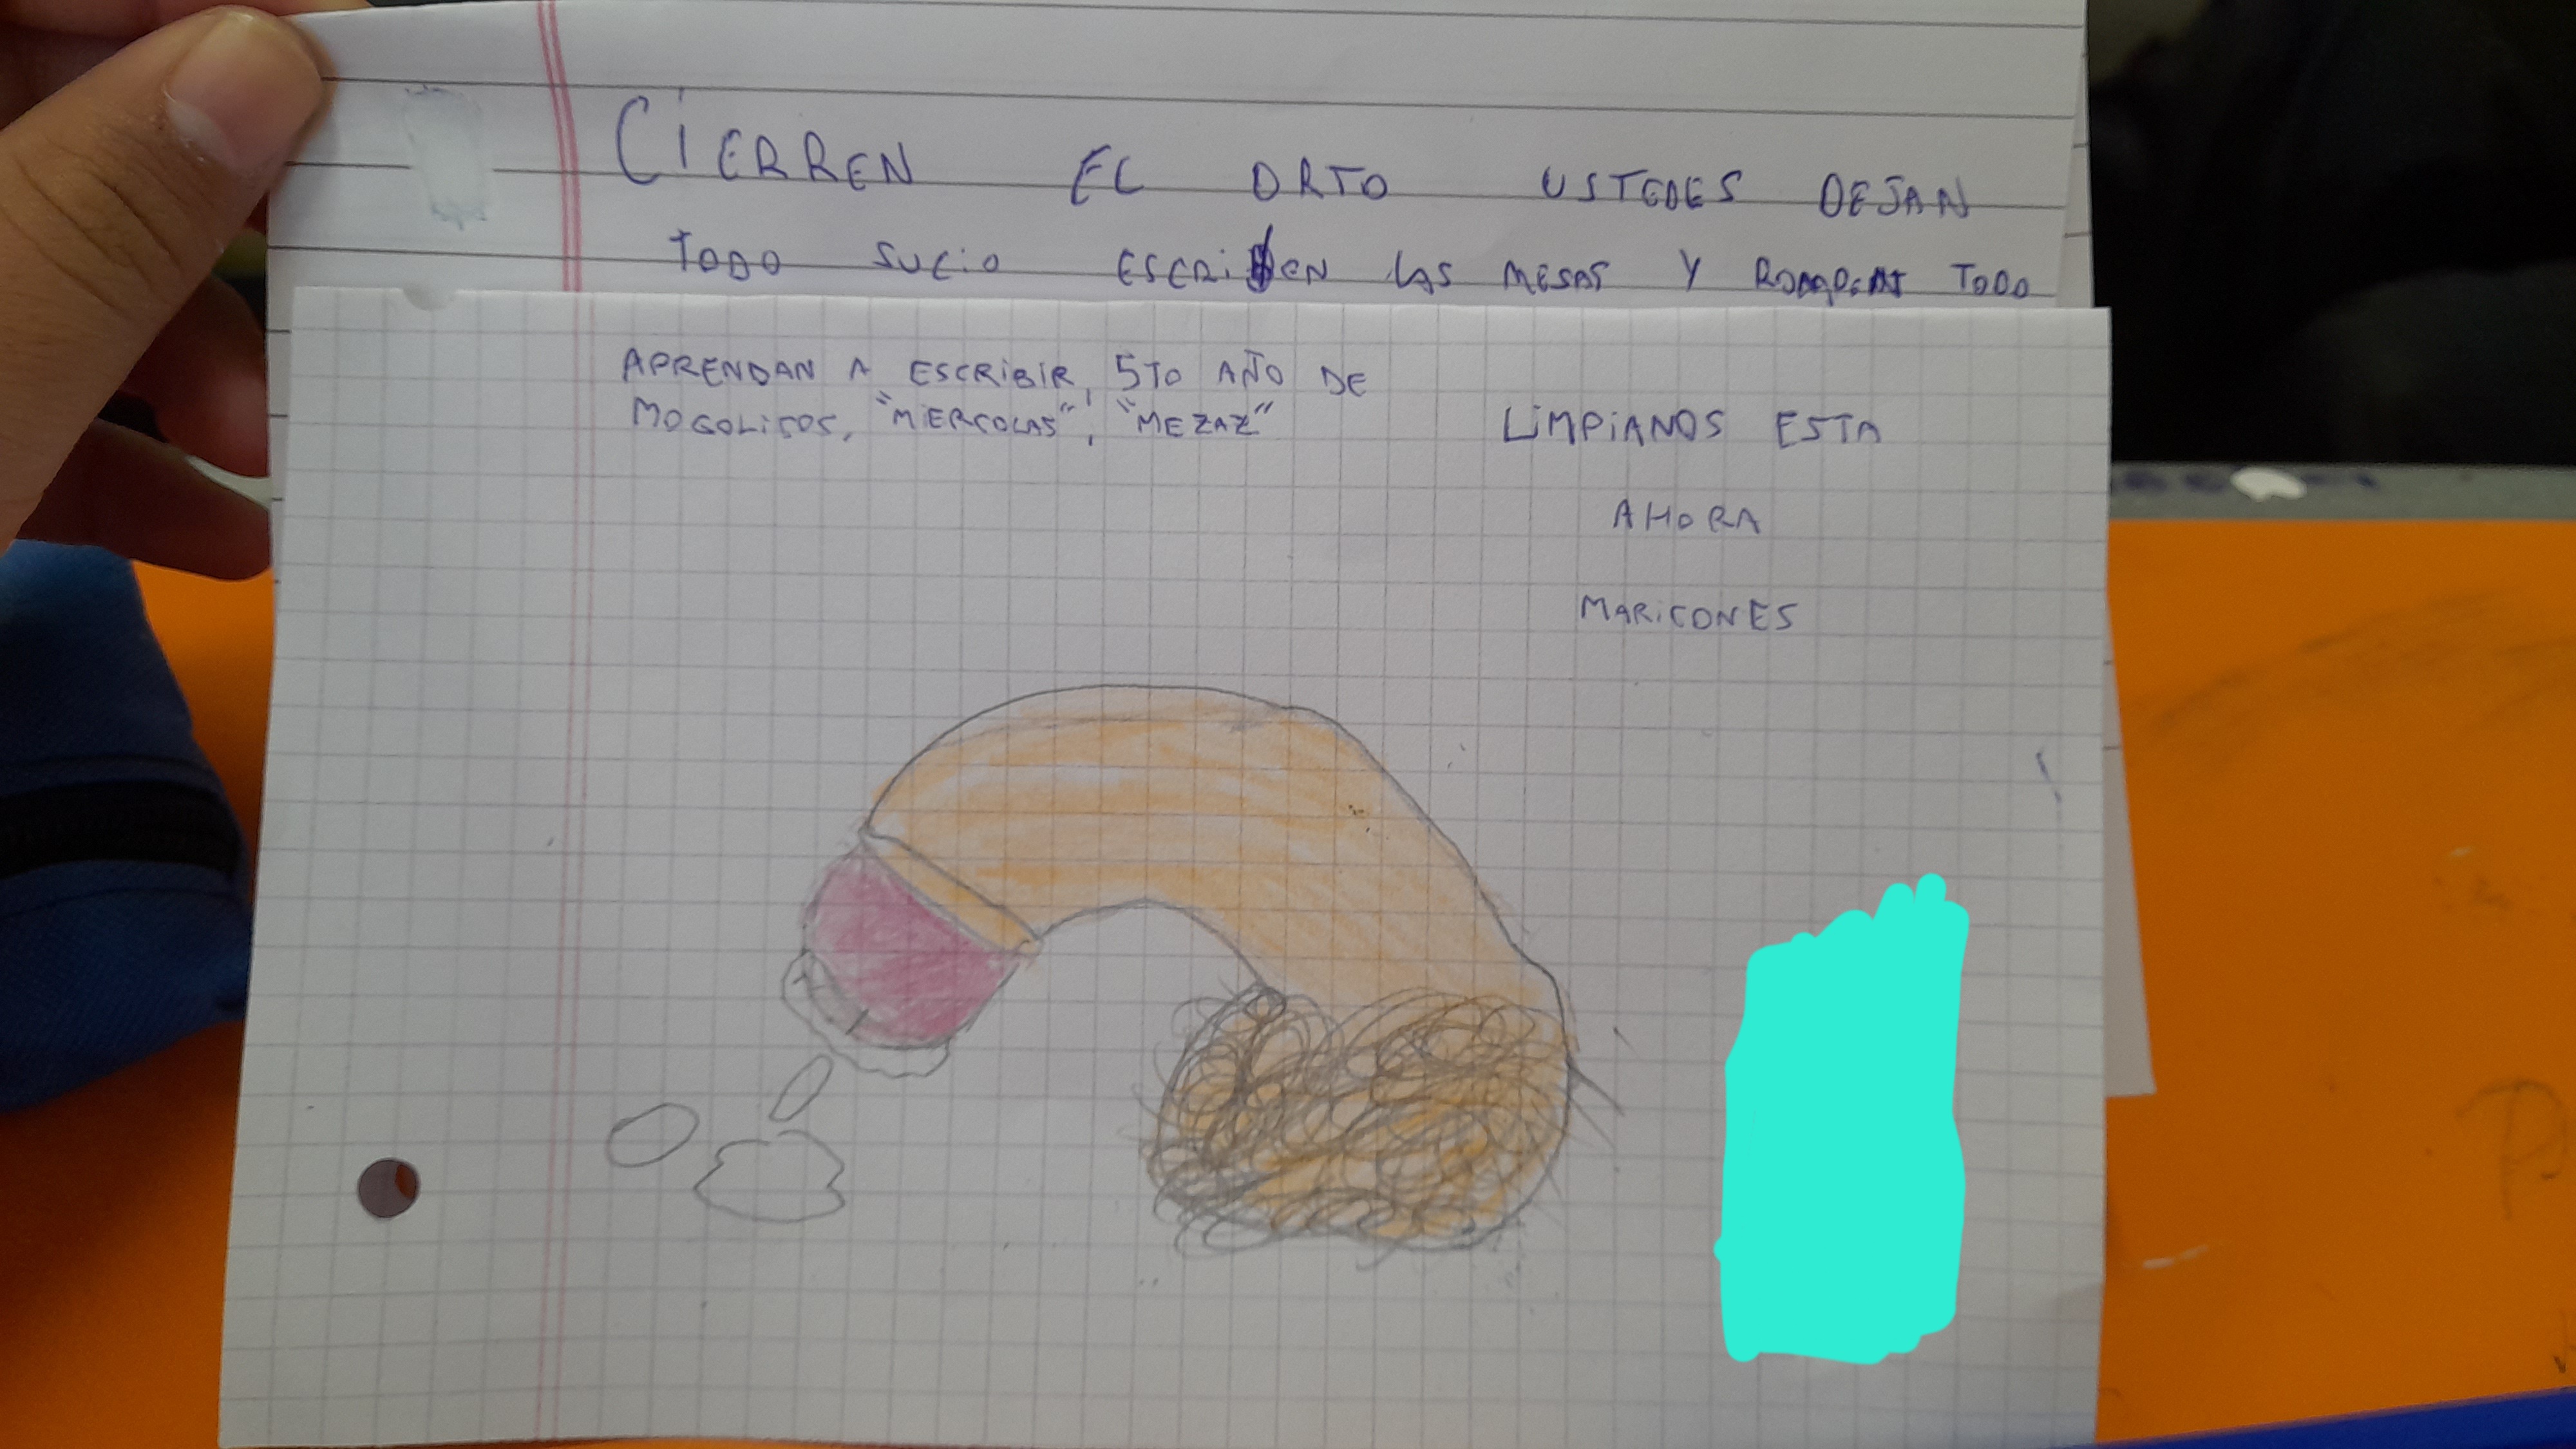 CIERREN EL ORTO USTEDES DEJAN
TODO SUCIO ESCRIBEN LAS MESAS Y ROMPEN TODO
APRENDAN A ESCRIBIR, 5TO AÑO DE
MOGOLICOS, "MIERCOLAS", "MEZAZ"
LIMPIANOS ESTA
AHORA
MARICONES